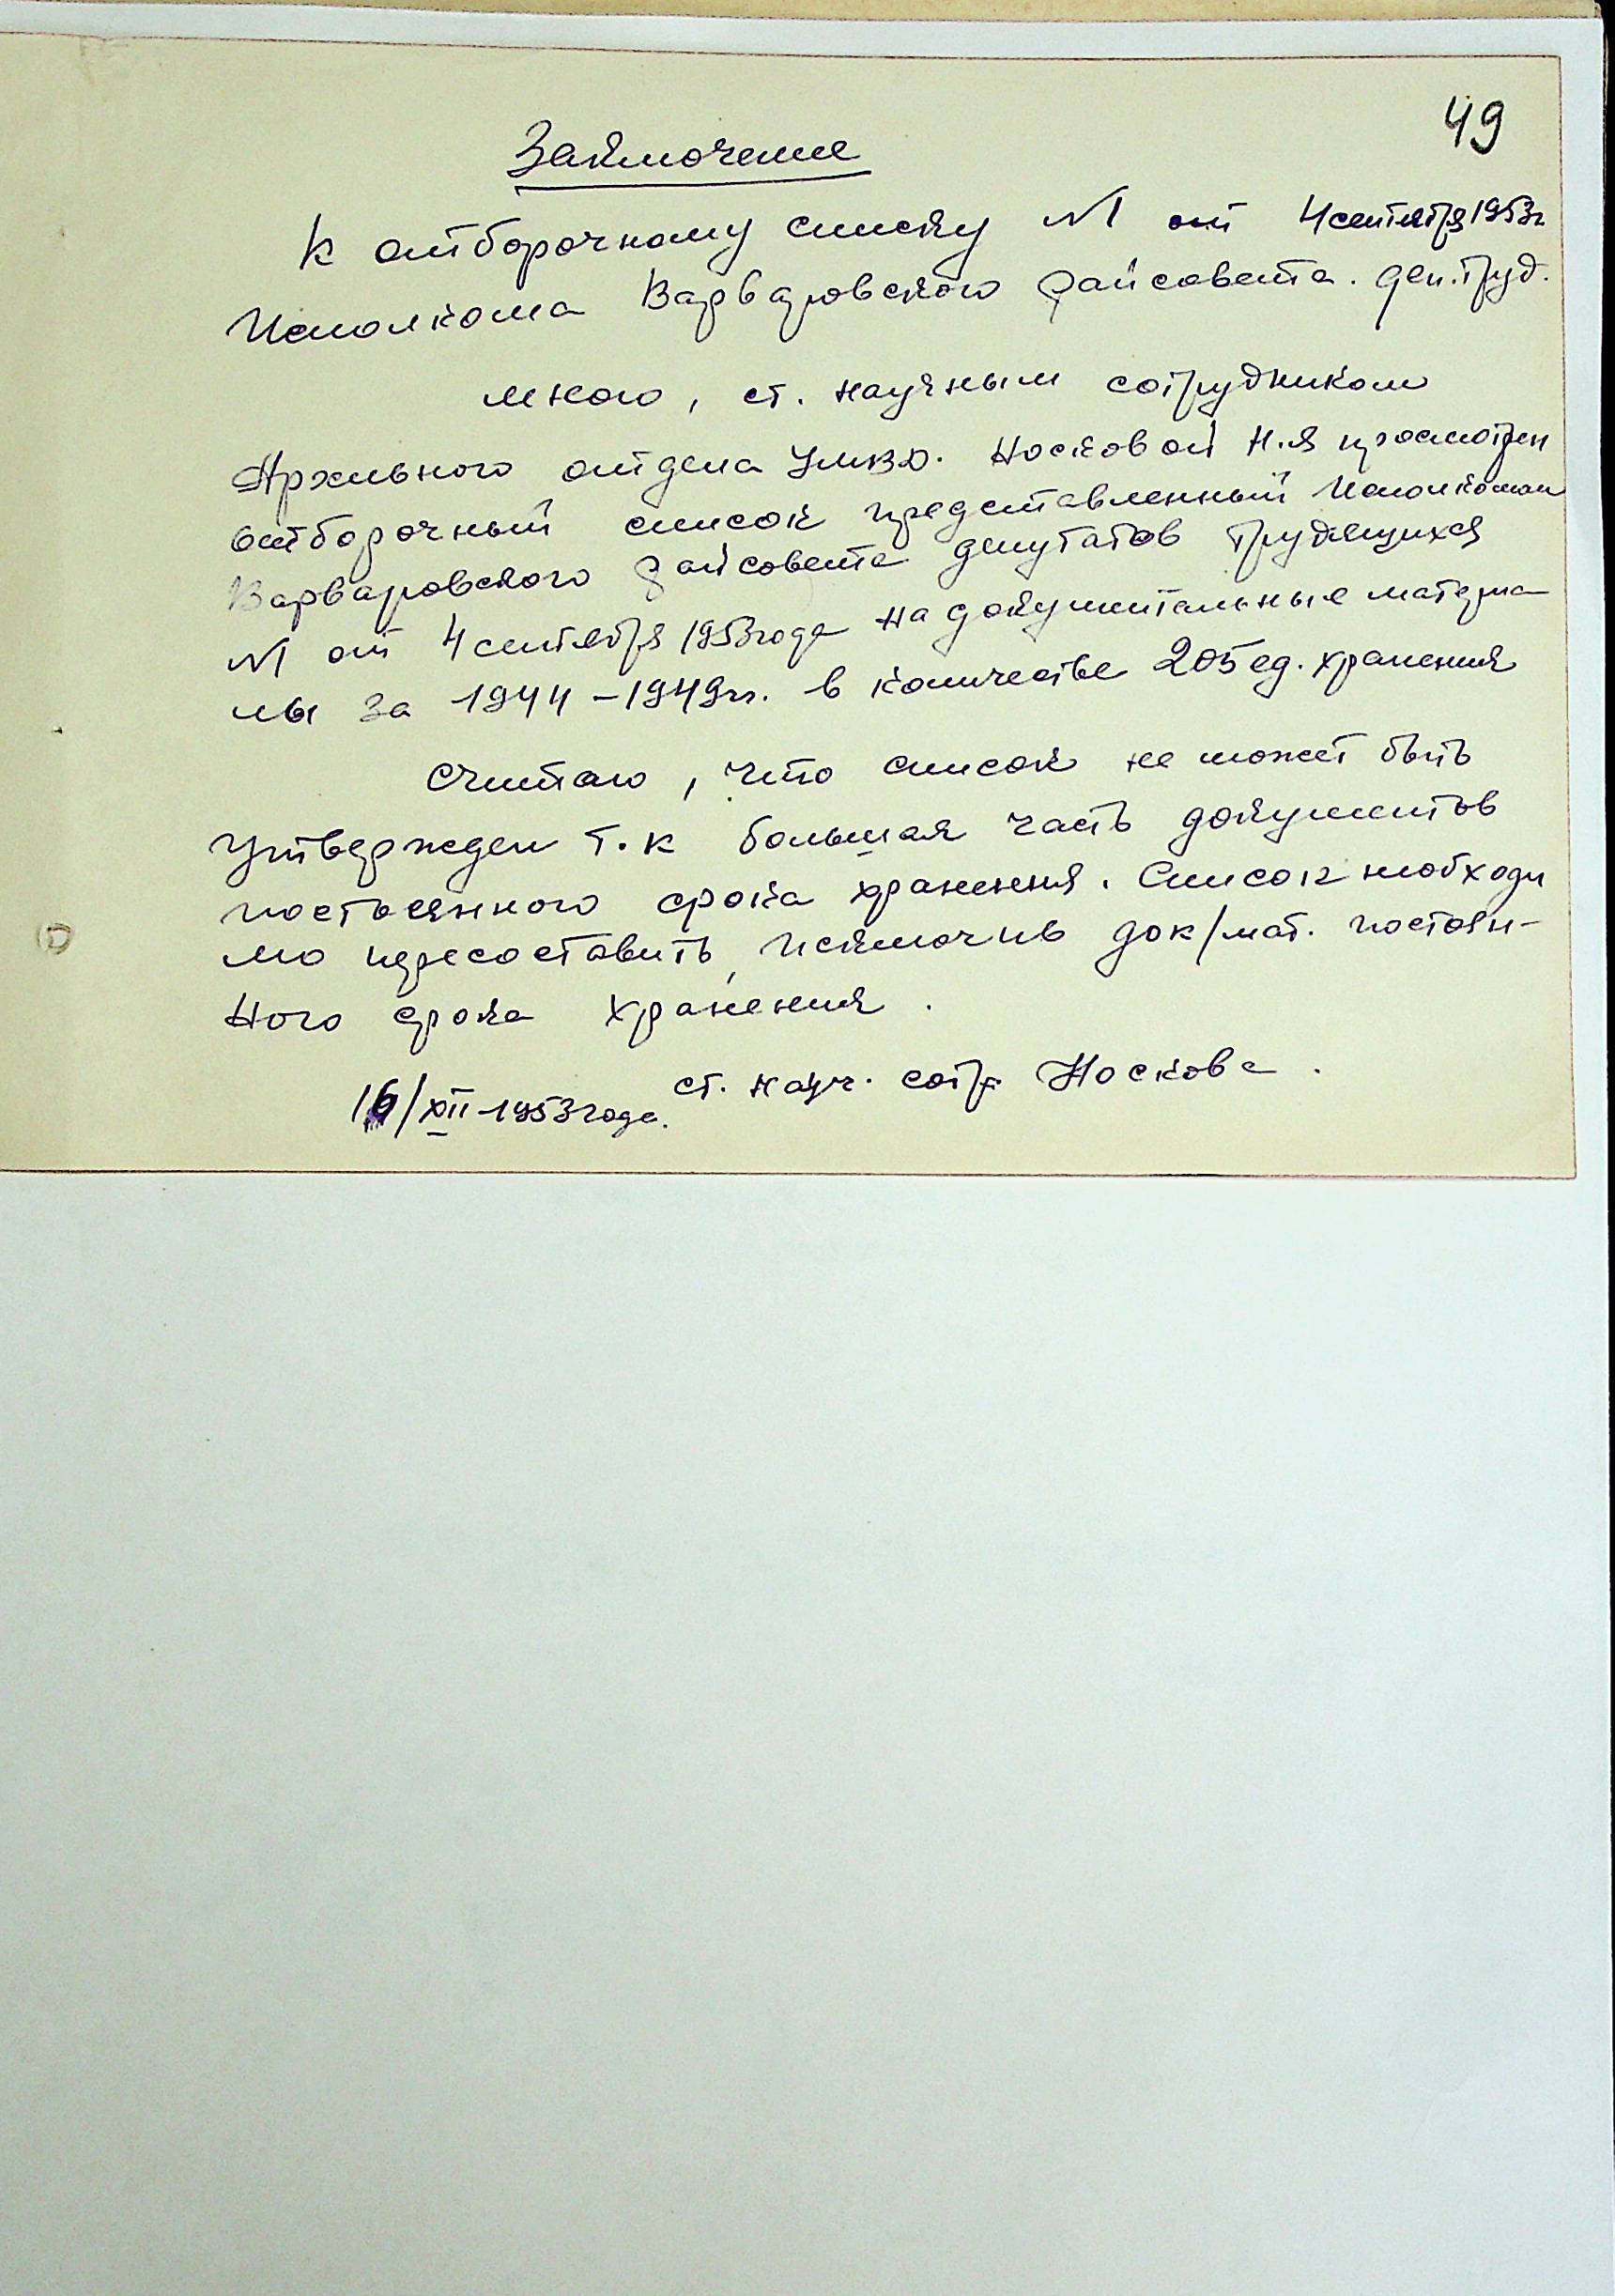 49
Заключение
К отборочному списку №1 от 4 сентября 1953г
Исполкома Варваровского райсовета. деп. труд.
Мною, ст. научным сотрудником
Архивного отдела УМВД. Носковой Н.Я просмотрен
отборочный список представленный Исполкомом
Варваровского райсовета депутатов трудящихся
№1 от 4 сентября 1953 года на документальные материа
лы за 1944-1949гг. в количестве 205 ед. хранения
Считаю, что список не может быть
утвержден т.к большая часть документов
постоянного срока хранения. Список необходи
мо пересоставить, исключив док/мат. постоян-
ного срока хранения.
ст. науч. сотр Носкова.
16/XII-1953 года.